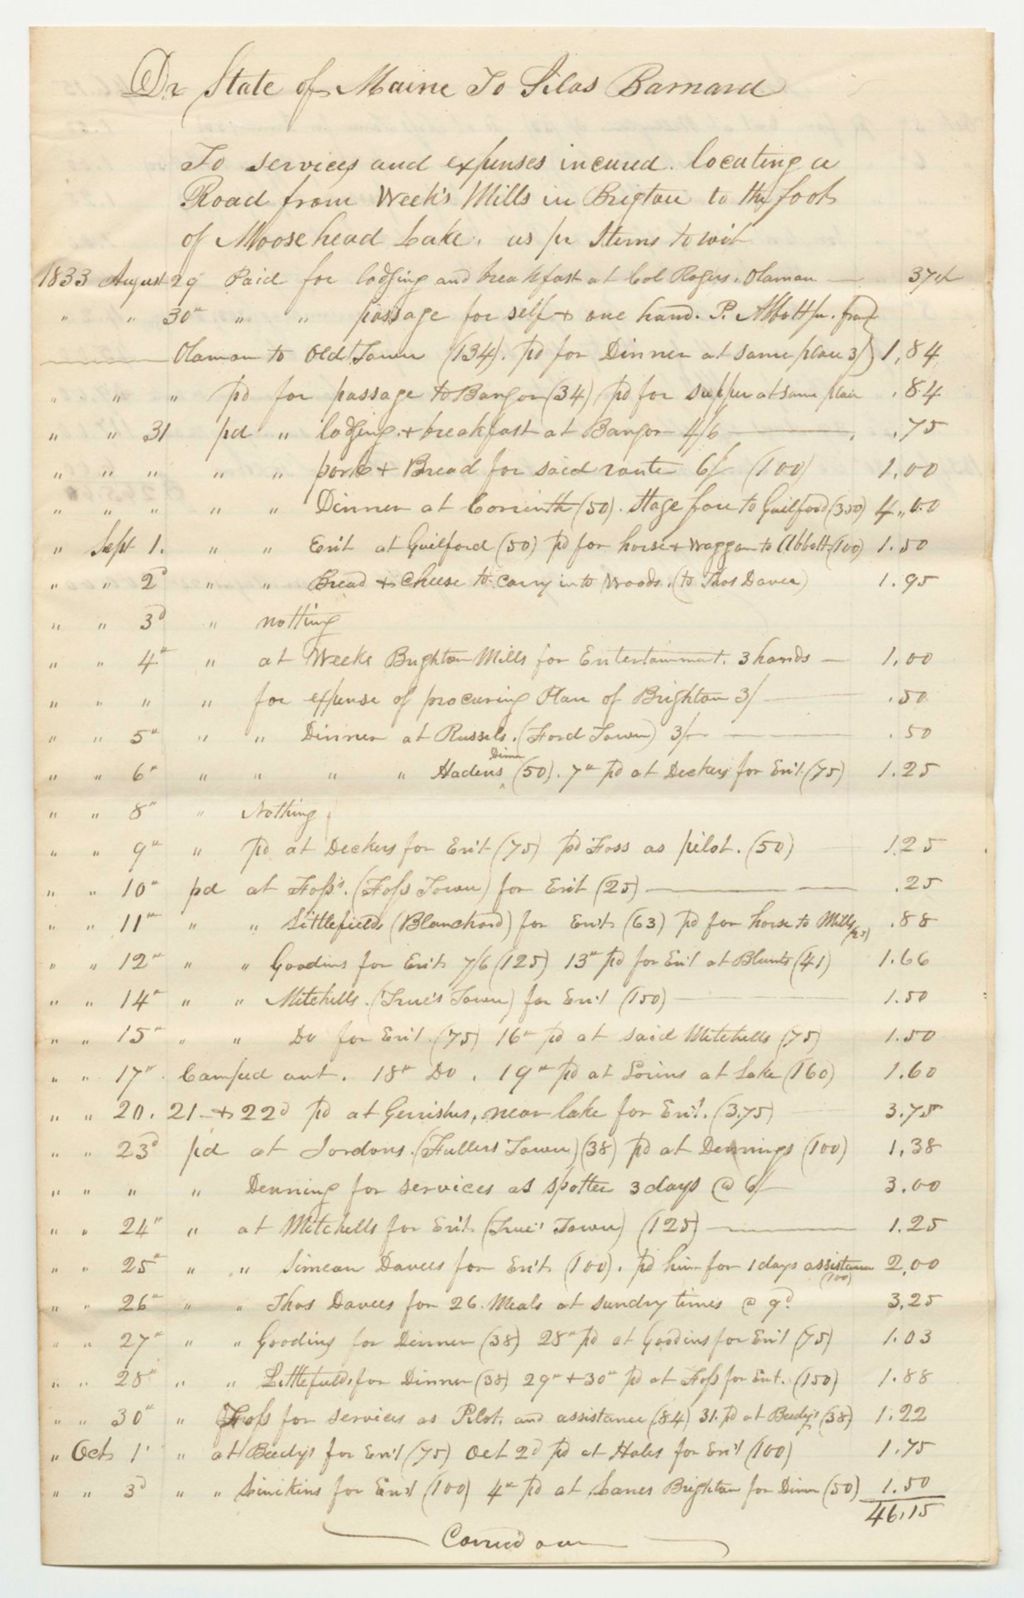 Dr State of Maine To Silas Barnard
To services and expenses incured. locating a
Road from Week's Mills in Brigton to the foot
of Moose head Lake. as pr Items to wit
1833 August 29 Paid for lodging and breakfast at Col Rogers. Olaman — 37 ct
" " 30th " " passage for self & one hand. P. Abbott jr. from
Olaman to Old Town (134). pd for Dinner at same place 3/ 1,84
" " " pd for passage to Bangor (34) pd for supper at same place .84
" " 31 pd " lodging & breakfast at Bangor 4/6 — .75
" " " " " pork & Bread for said route 6/ (100) 1.00
" " " " " Dinner at Corrinth (50). Stage fare to Guilford (350) 4,,00
" Sept 1. " " Ent at Guilford (50) pd for horse & Waggon to Abbott (100) 1.50
" " 2d " " Bread & Cheese to carry into Woods. (to Thos Davee) 1.95
" " 3d " nothing
" " 4th " at Weeks Brighton Mills for Entertainment. 3 hands — 1,00
" " " " for expense of procuring Plan of Brighton 3/ — .50
" " 5th " " Dinner at Russels. (Ford Town) 3/ — .50
" " 6th " " " " Hadens Dinner (50). 7th pd at Deckers for Ent (75) 1.25
" " 8th " Nothing
" " 9th " pd at Deckers for Ent (75) pd Foss as pilot. (50) 1.25
" " 10th pd at Foss's. (Foss Town) for Ent (25) — .25
" " 11th " " Littlefields (Blanchard) for Ent (63) pd for horse to Mills (25) .88
" " 12th " " Goodins for Ent 7/6 (125) 13th pd for Ent at Blunts (41) 1.66
" " 14th " " Mitchells. (True's Town) for Ent (150) — 1.50
" " 15th " " Do for Ent. (75) 16th pd at said Mitchells (75) 1.50
" " 17th Camped out. 18th Do. 19th pd at at Lake (160) 1.60
" " 20. 21 & 22d pd at Gerrishes, near lake for Ent. (3.75) 3.75
" " 23d pd at Jordons. (Fullers Town) (38) pd at Dennings (100) 1,38
" " " " Denning for services as spotter 3 days @ 6/ 3.00
" " 24th " at Mitchells for Ent (True's Town) (125) — 1.25
" " 25th " " Simeon Davees for Ent (100). pd him for 1 days assistance (100) 2,00
" " 26th " " Thos Davees for 26 Meals at sundry times @ 9d. 3,25
" " 27th " " Goodins for Dinner (38) 28th pd at Goodins for Ent (75) 1.03
" " 28th " " Littlefields for Dinner (38) 29th & 30th pd at Foss for Ent. (150) 1.88
" " 30th " Foss for services as Pilot, and assistance (84) 31. pd at Beedys (38) 1,22
" Oct 1st " at Beedys for Ent (75) Oct 2d pd at Hales for Ent (100) 1.75
" " 3d " " for Ent (100) 4th pd at Lanes Brighton for Dinner (50) 1.50
46,15
Carried over